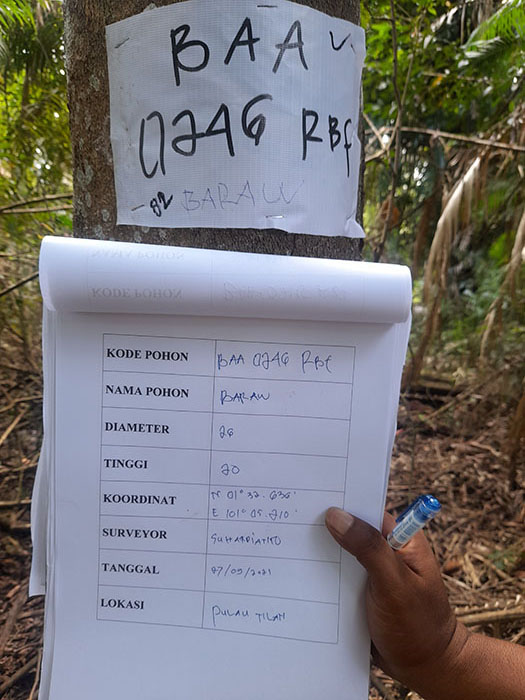 BAA
0246 RBf
-82 BARAW
KODE POHON BAA 0246 RBf
NAMA POHON BARAW
DIAMETER 26
TINGGI 20
KOORDINAT N 01° 32. 636'
E 101° 05. 210'
SURVEYOR
TANGGAL 27/05/2021
LOKASI PULAU TILAN